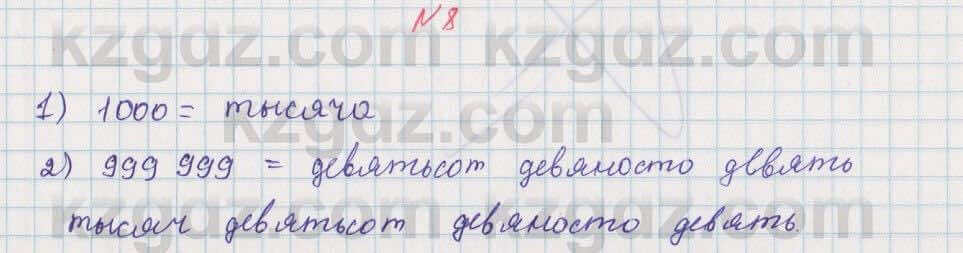 N8
kzgaz.com kzgaz.com
1) 1000 = тысяча
kzgaz.com
2) 999 999 = девятьсот девяносто девять
тысяч девятьсот девяносто девять.
kzgaz.com kzgaz.com